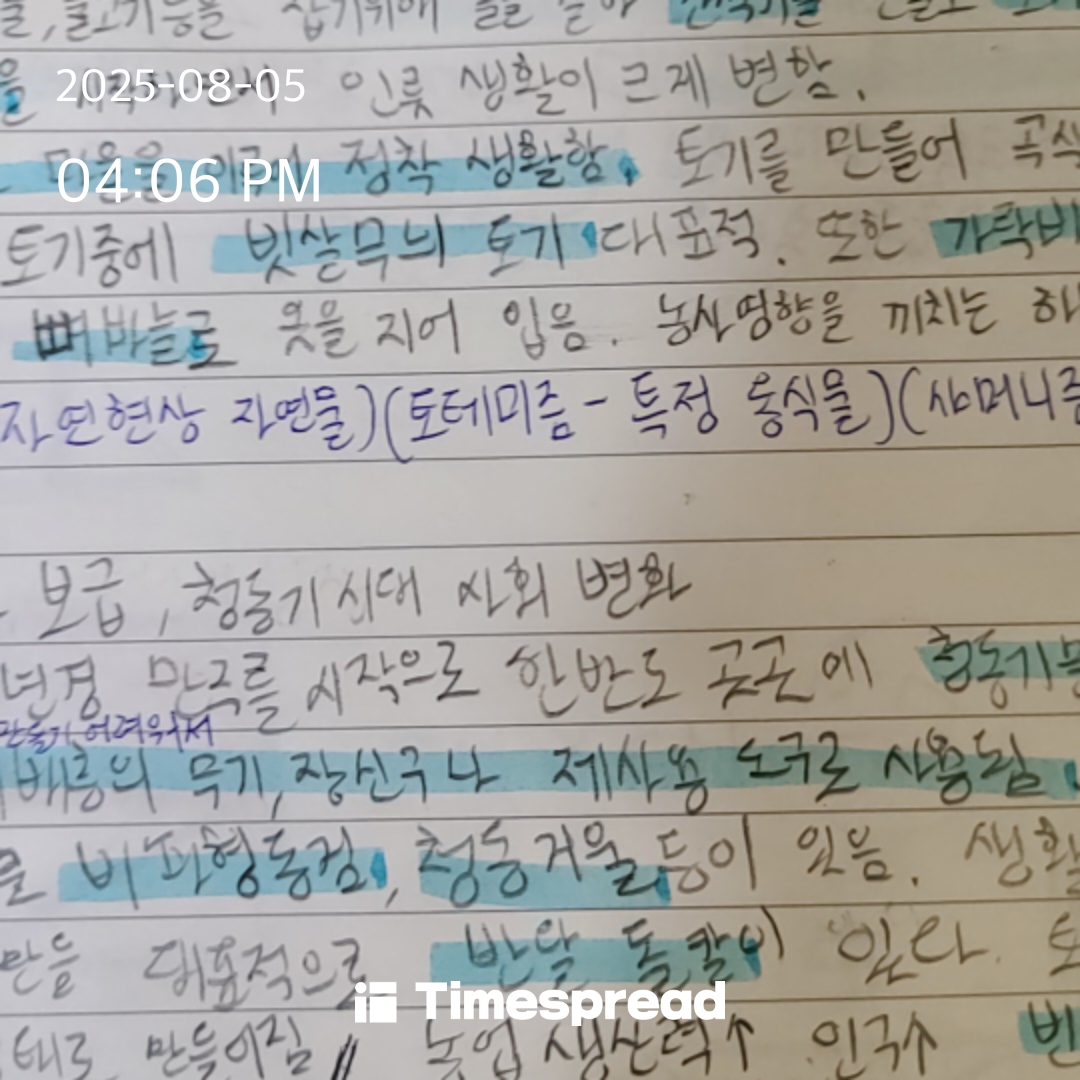 잡기위해 돌을 갈아
2025-08-05
인류 생활이 크게 변함.
04:06 PM
정착 생활함. 토기를 만들어 곡식
토기중에 빗살무늬 토기 대표적. 또한 가락바
뼈바늘로 옷을 지어 입음. 농사영향을 끼치는
자연현상 자연물)(토테미즘 - 특정 동식물)(샤머니즘
보급, 청동기시대 사회 변화
년경 만주를 시작으로 한반도 곳곳에 청동기
만들기 어려워서
지배층의 무기, 장신구나 제사용 도구로 사용됨.
비파형동검, 청동거울 등이 있음. 생활
만든 대표적으로 반달 돌칼이 있다.
Timespread
만들어짐 // 농업 생산력↑ 인구↑ 빈